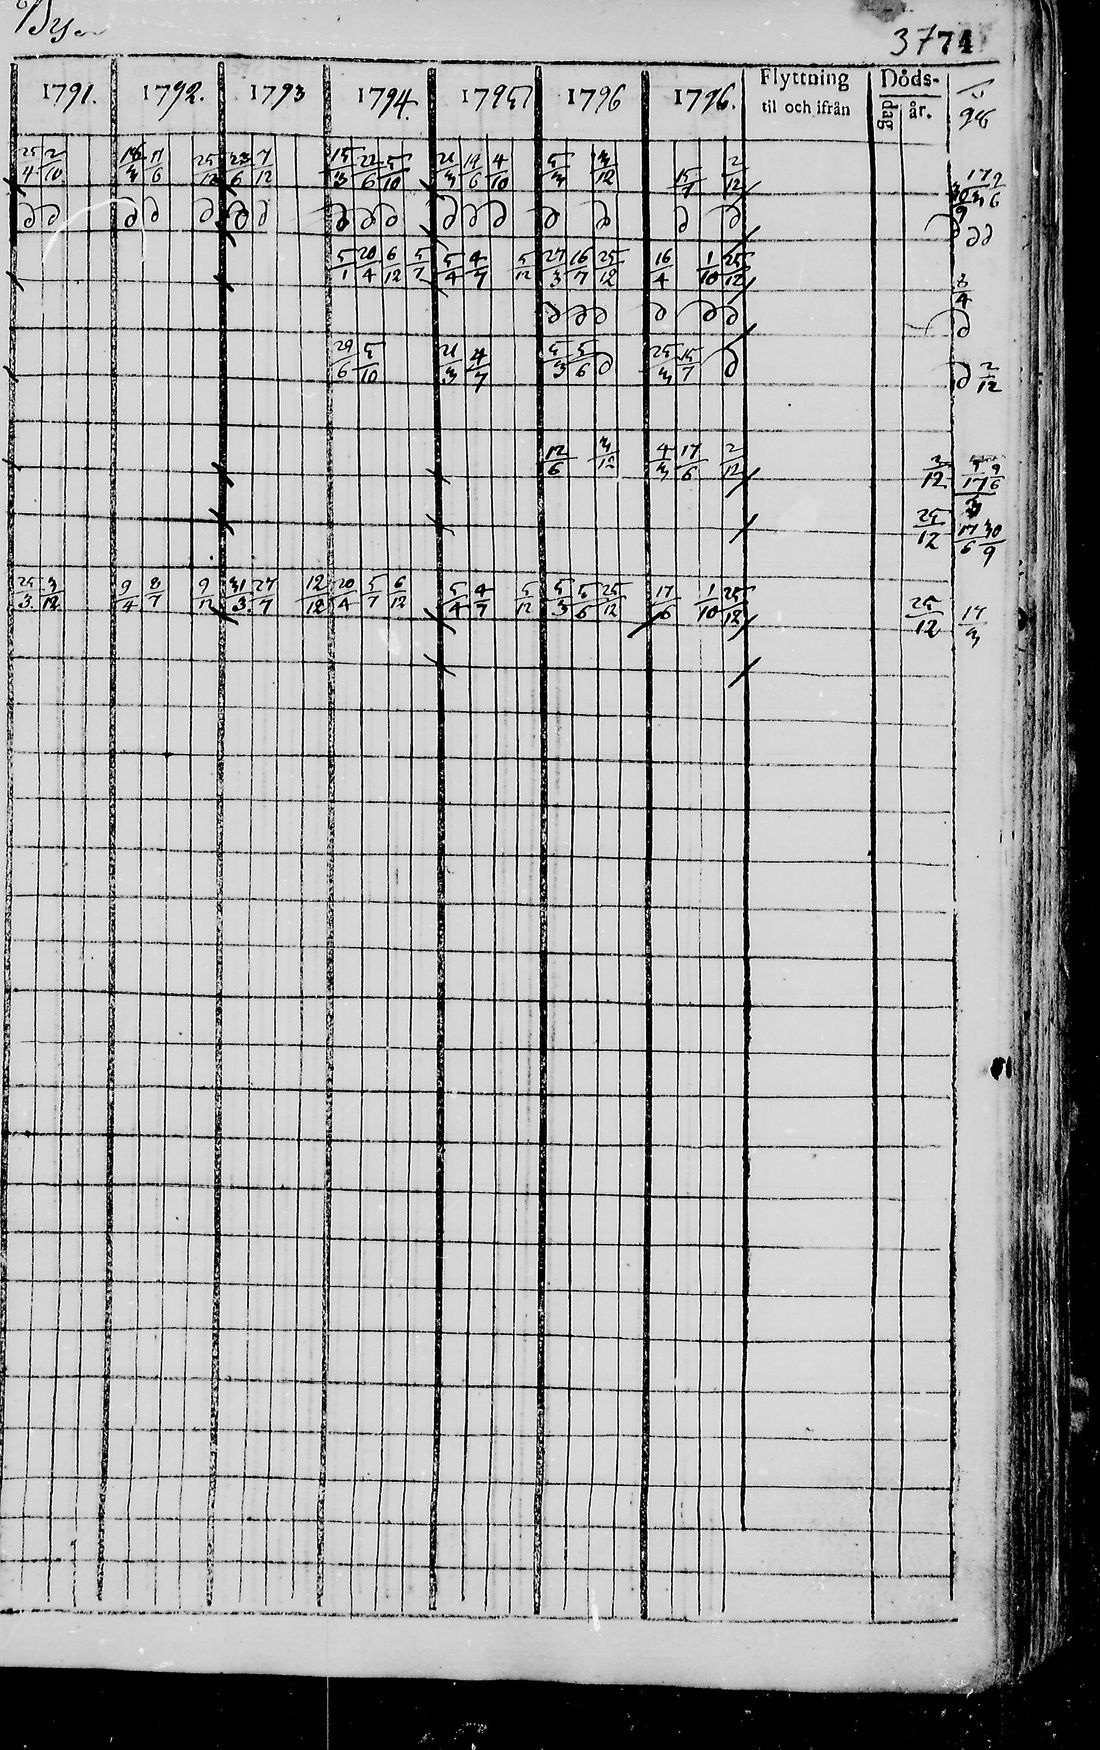 Byn
37 71
1791. 1792. 1793 1794. 1795 1796 1796. Flyttning til och ifrån Döds- dag år. 98
25/4 2/10 18/3 17/6 25/12 23/6 7/12 15/3 22/6 5/10 21/3 19/6 4/10 5/3 3/12 15/7 2/12
5/1 20/4 6/12 5/7 5/4 4/7 5/12 27/3 16/7 25/12 16/4 1/10 25/12 8/4
29/6 5/10 21/3 4/7 5/3 5/6 25/3 15/7 2/12
12/6 3/12 4/3 17/6 2/12 3/12
25/12 17/6 30/9
25/3 3/12 9/4 8/7 9/12 31/3 27/7 12/12 20/4 5/7 6/12 5/4 4/7 5/12 5/3 5/6 25/12 17/6 1/10 25/12 25/12 17/3